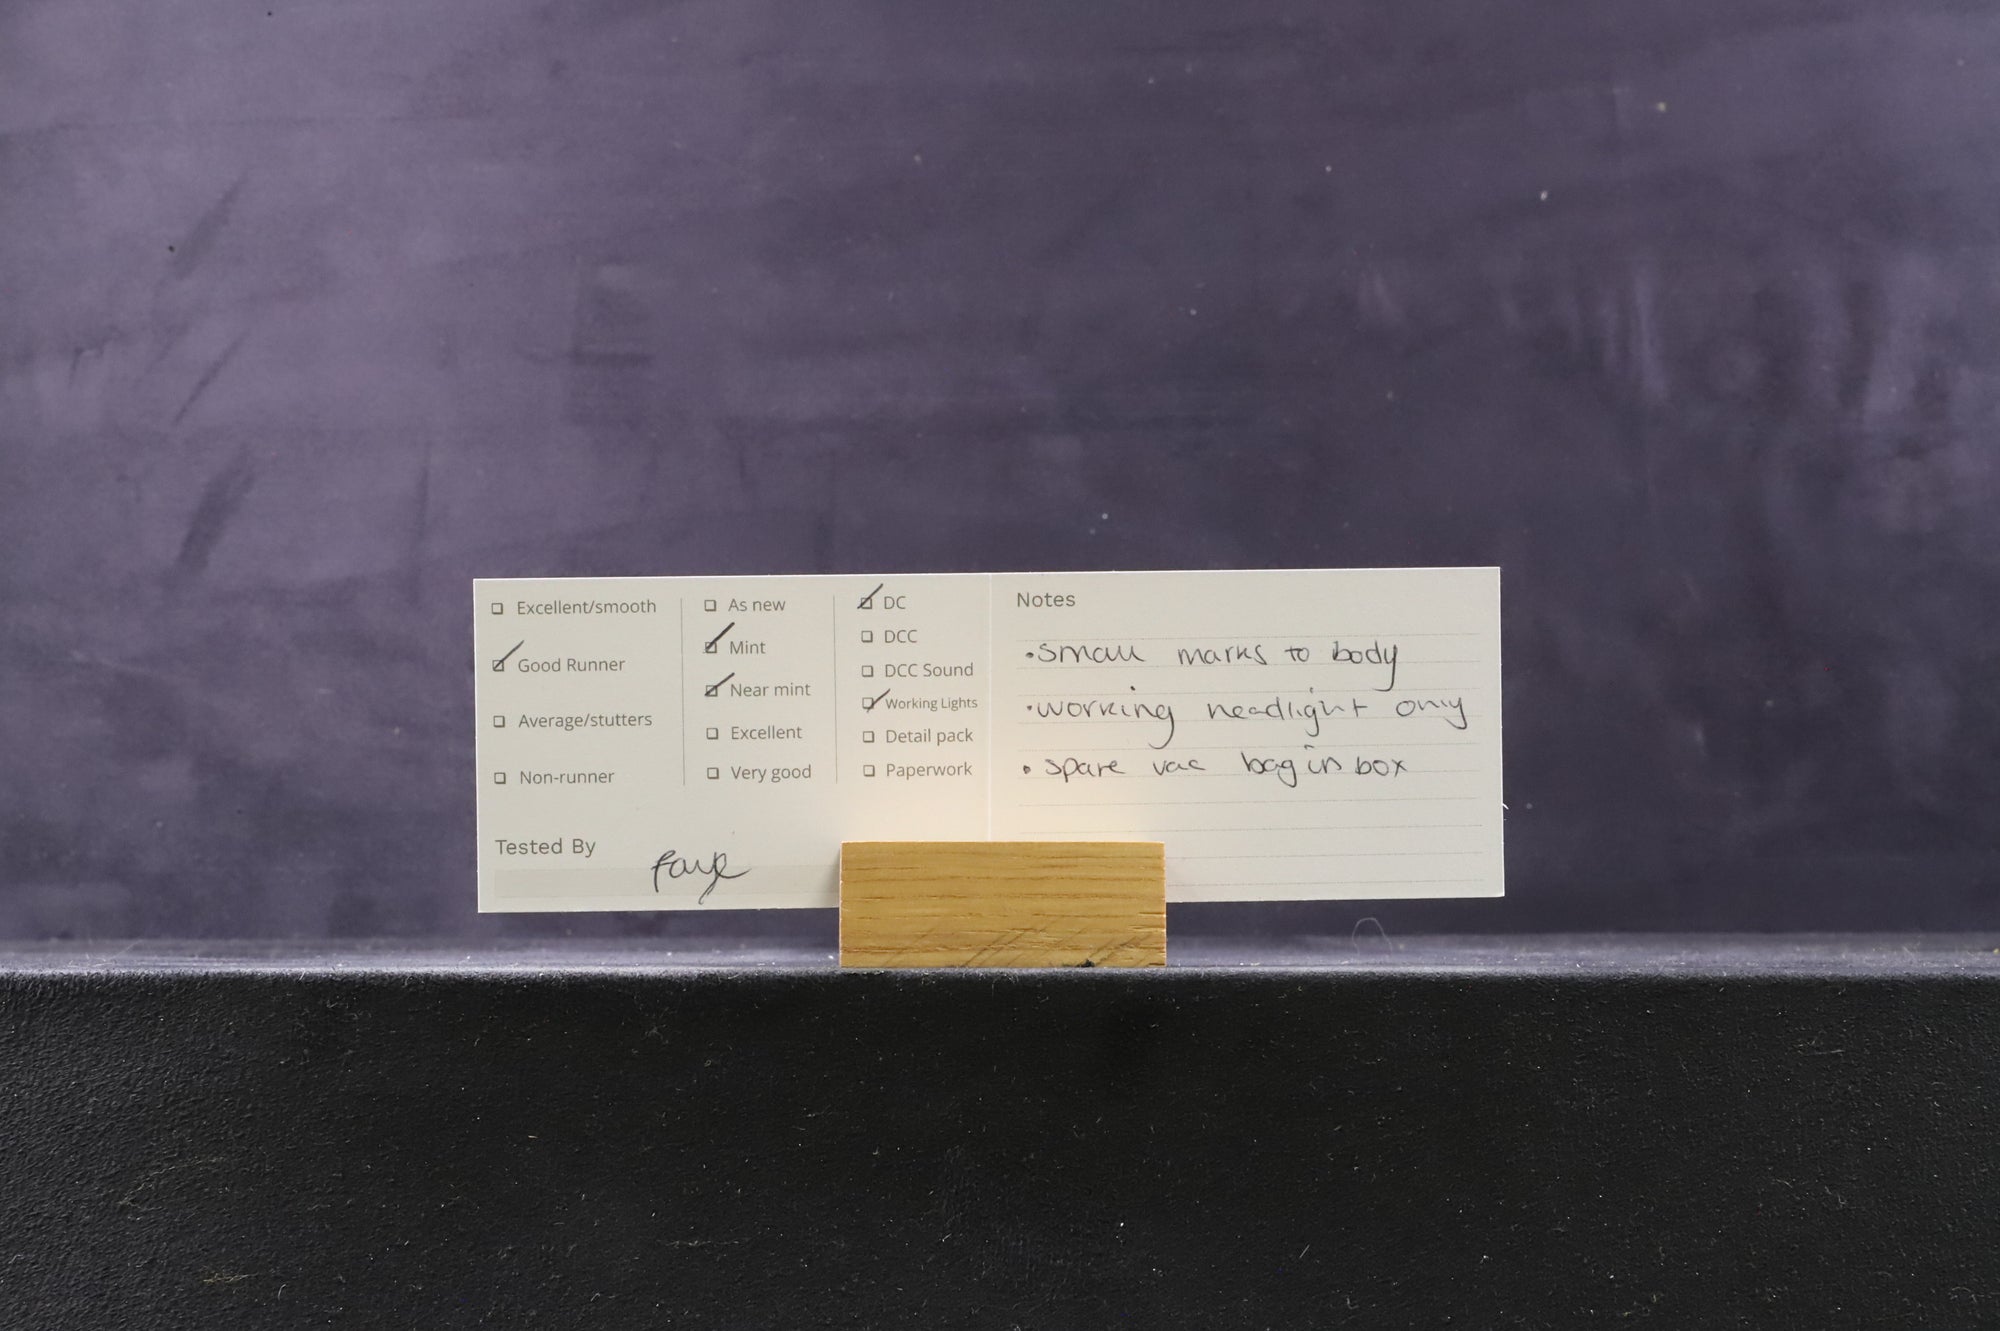 Excellent/smooth
Good Runner
Average/stutters
Non-runner
Tested By
Faye
As new
Mint
Near mint
Excellent
Very good
DC
DCC
DCC Sound
Working Lights
Detail pack
Paperwork
Notes
• small marks to body
• working headlight only
• spare vac bag in box